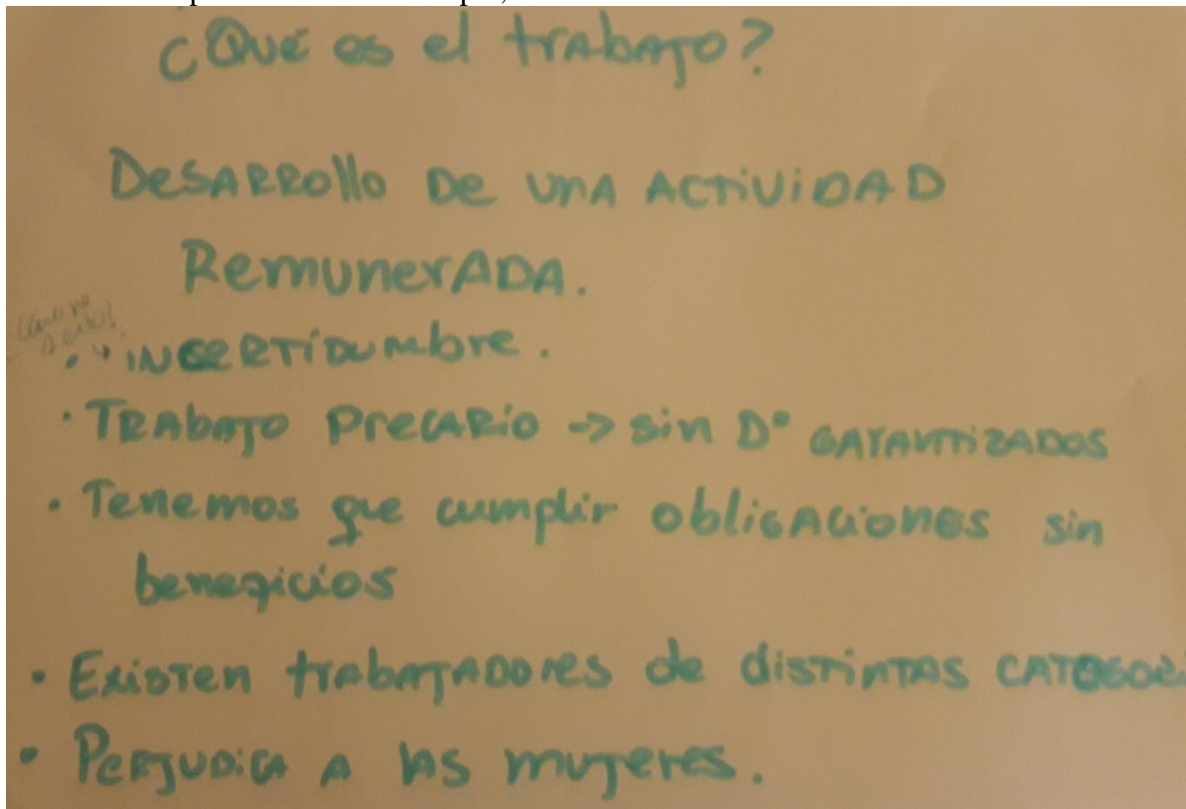 ¿Qué es el trabajo?
DESARROLLO DE UNA ACTIVIDAD
REMUNERADA.
· INCERTIDUMBRE.
· TRABAJO PRECARIO -> sin D° GARANTIZADOS
· Tenemos que cumplir obligaciones sin
beneficios
· Existen trabajadores de distintas CATEGOR
· PERJUDICA A las mujeres.